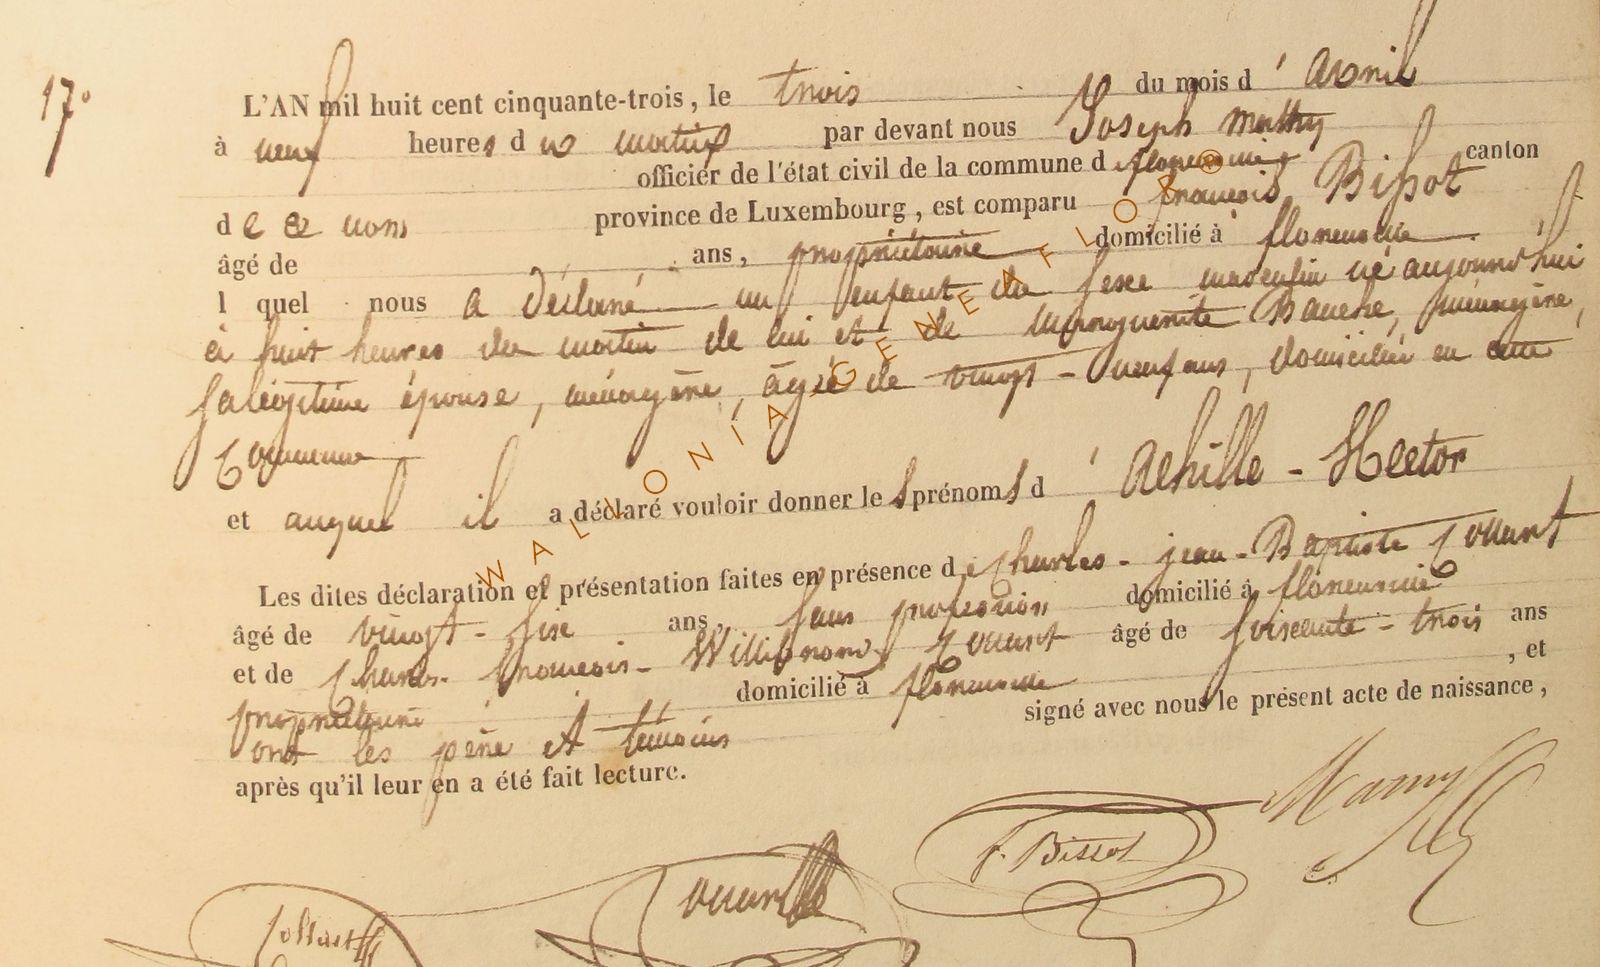 17°
L'AN mil huit cent cinquante-trois, le trois du mois d'avril
à neuf heures du matin par devant nous Joseph Mathy
officier de l'état civil de la commune de florenville canton
de et nons province de Luxembourg, est comparu françois Bissot
âgé de ans, propriétaire domicilié à florenville
l quel nous a déclaré un enfant du sexe masculin né aujourd'hui
à huit heures du matin de lui et de Marguerite Bauche, ménagère,
sa légitime épouse, ménagère, âgée de vingt-neuf ans, domiciliée en cette
Commune
et auquel il a déclaré vouloir donner les prénoms d'Achille-Hector
Les dites déclaration et présentation faites en présence de Charles-jean-Baptiste Collart
âgé de vingt-six ans, sans profession domicilié à florenville
et de Charles-françois-Willibrord Collart âgé de soixante-trois ans
propriétaire domicilié à florenville, et
ont les père et témoins signé avec nous le présent acte de naissance,
après qu'il leur en a été fait lecture.
F. Bissot
Collart
WALLONIA GENEAFLOR®